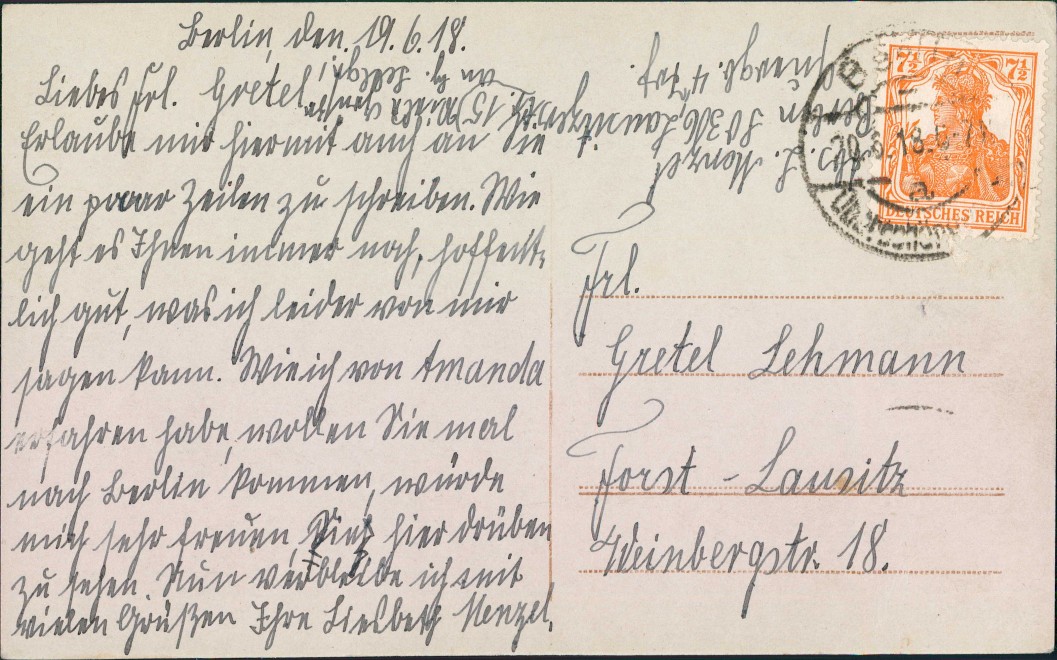 Berlin, den. 19.6.18.
Liebes Frl. Gretel!
Erlaube mir hiermit auch an Sie
ein paaar Zeilen zu schreiben. Wie
geht es Ihnen immer noch, hoffent-
lich gut, was ich leider von mir
sagen kann. Wie ich von Amanda
erfahren habe, wollen Sie mal
nach Berlin kommen, würde
mich sehr freuen, Sie hier drüben
zu sehen. Nun verbleibe ich mit
vielen Grüßen Ihre Liesbeth Menzel.
Abs. L. Menzel
Berlin SO 36 Lausitzerstr. 15
Quergb. 4 Tr.
7½ 7½
DEUTSCHES REICH
20.6.18.5-
Frl.
Gretel Lehmann
Forst - Lausitz
Weinbergstr. 18.